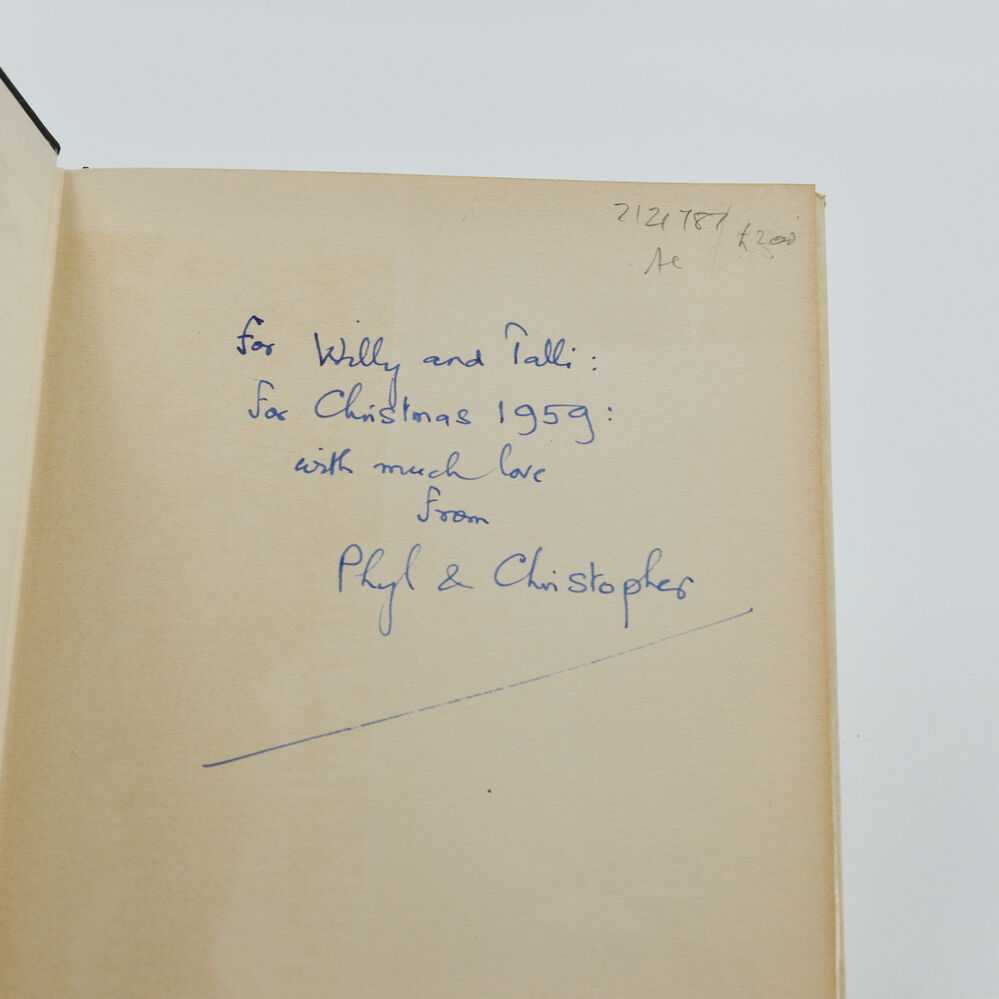 £200
For Willy and Talli:
For Christmas 1959:
with much love
from
Phyl & Christopher